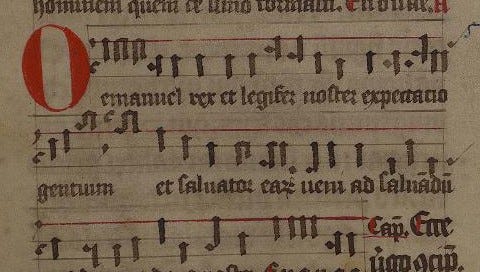 hominem quem de limo formasti. Euouae. A
O
emanuel rex et legifer noster expectacio
gentium et saluator earꝝ ueni ad saluādū
Cap̄. Ecce
uͥgo ꝯcip̄.